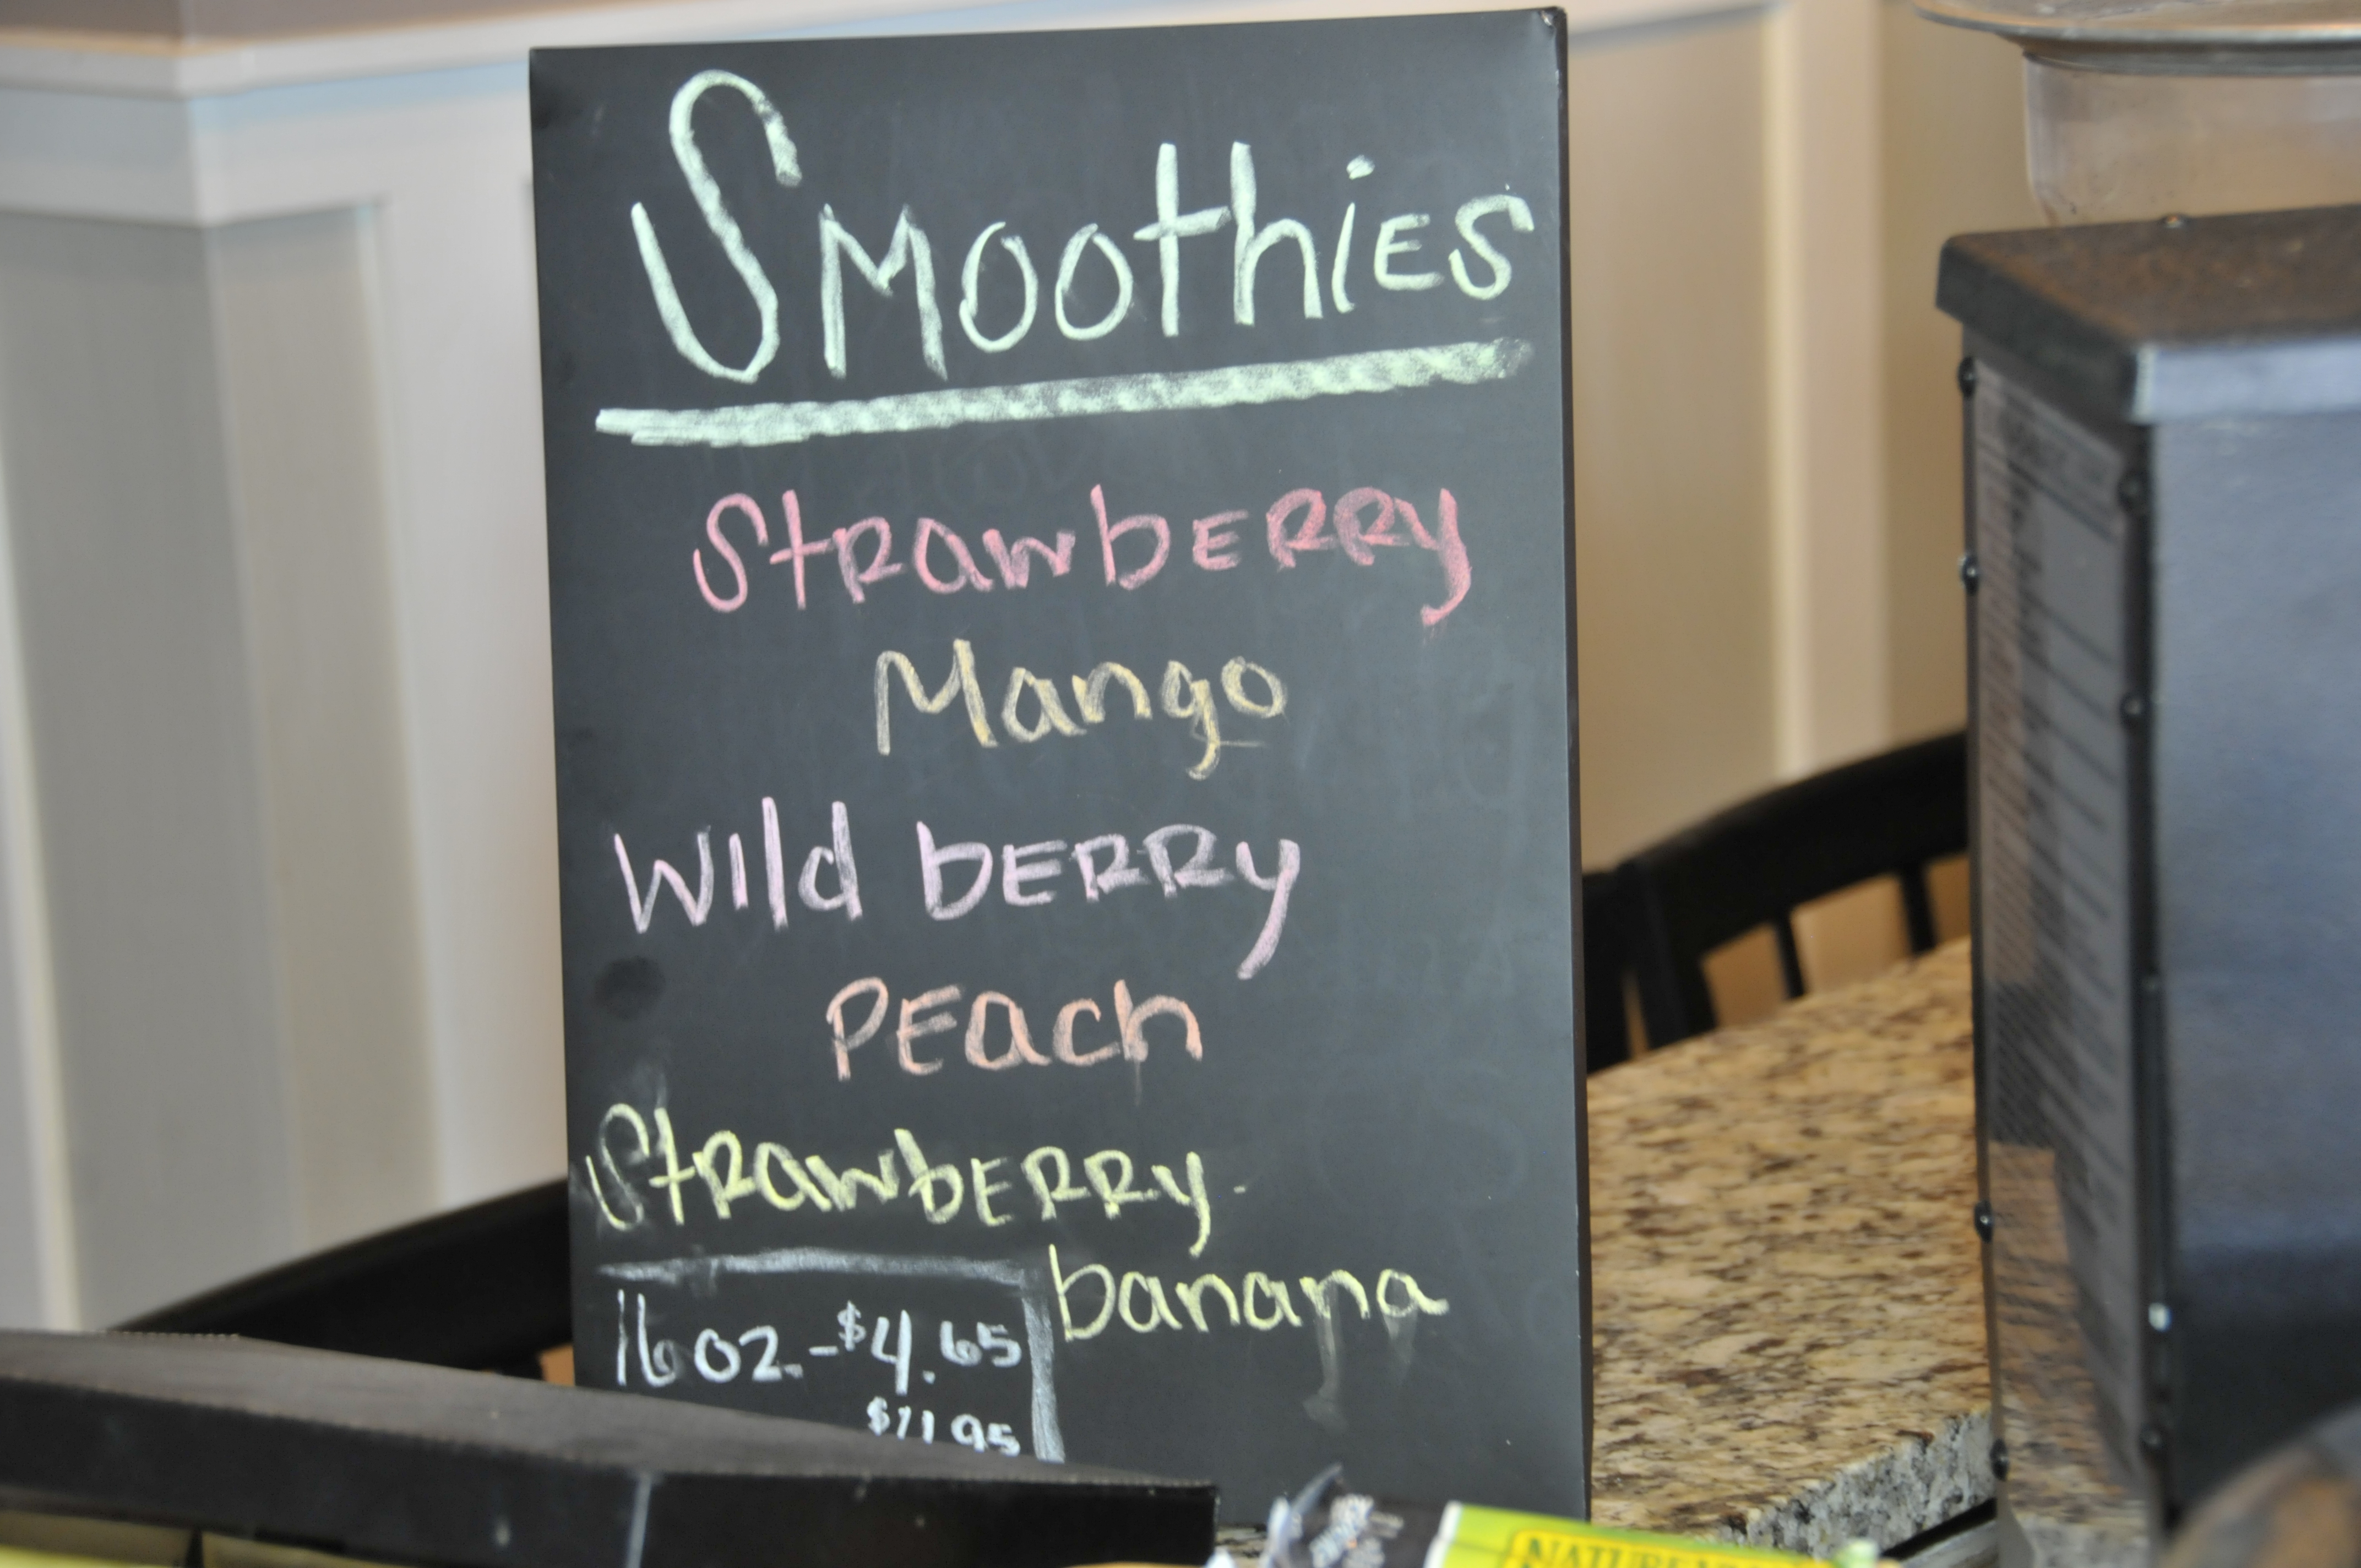 Smoothies
Strawberry
Mango
Wild berry
Peach
Strawberry-
banana
16 oz.-$4.65